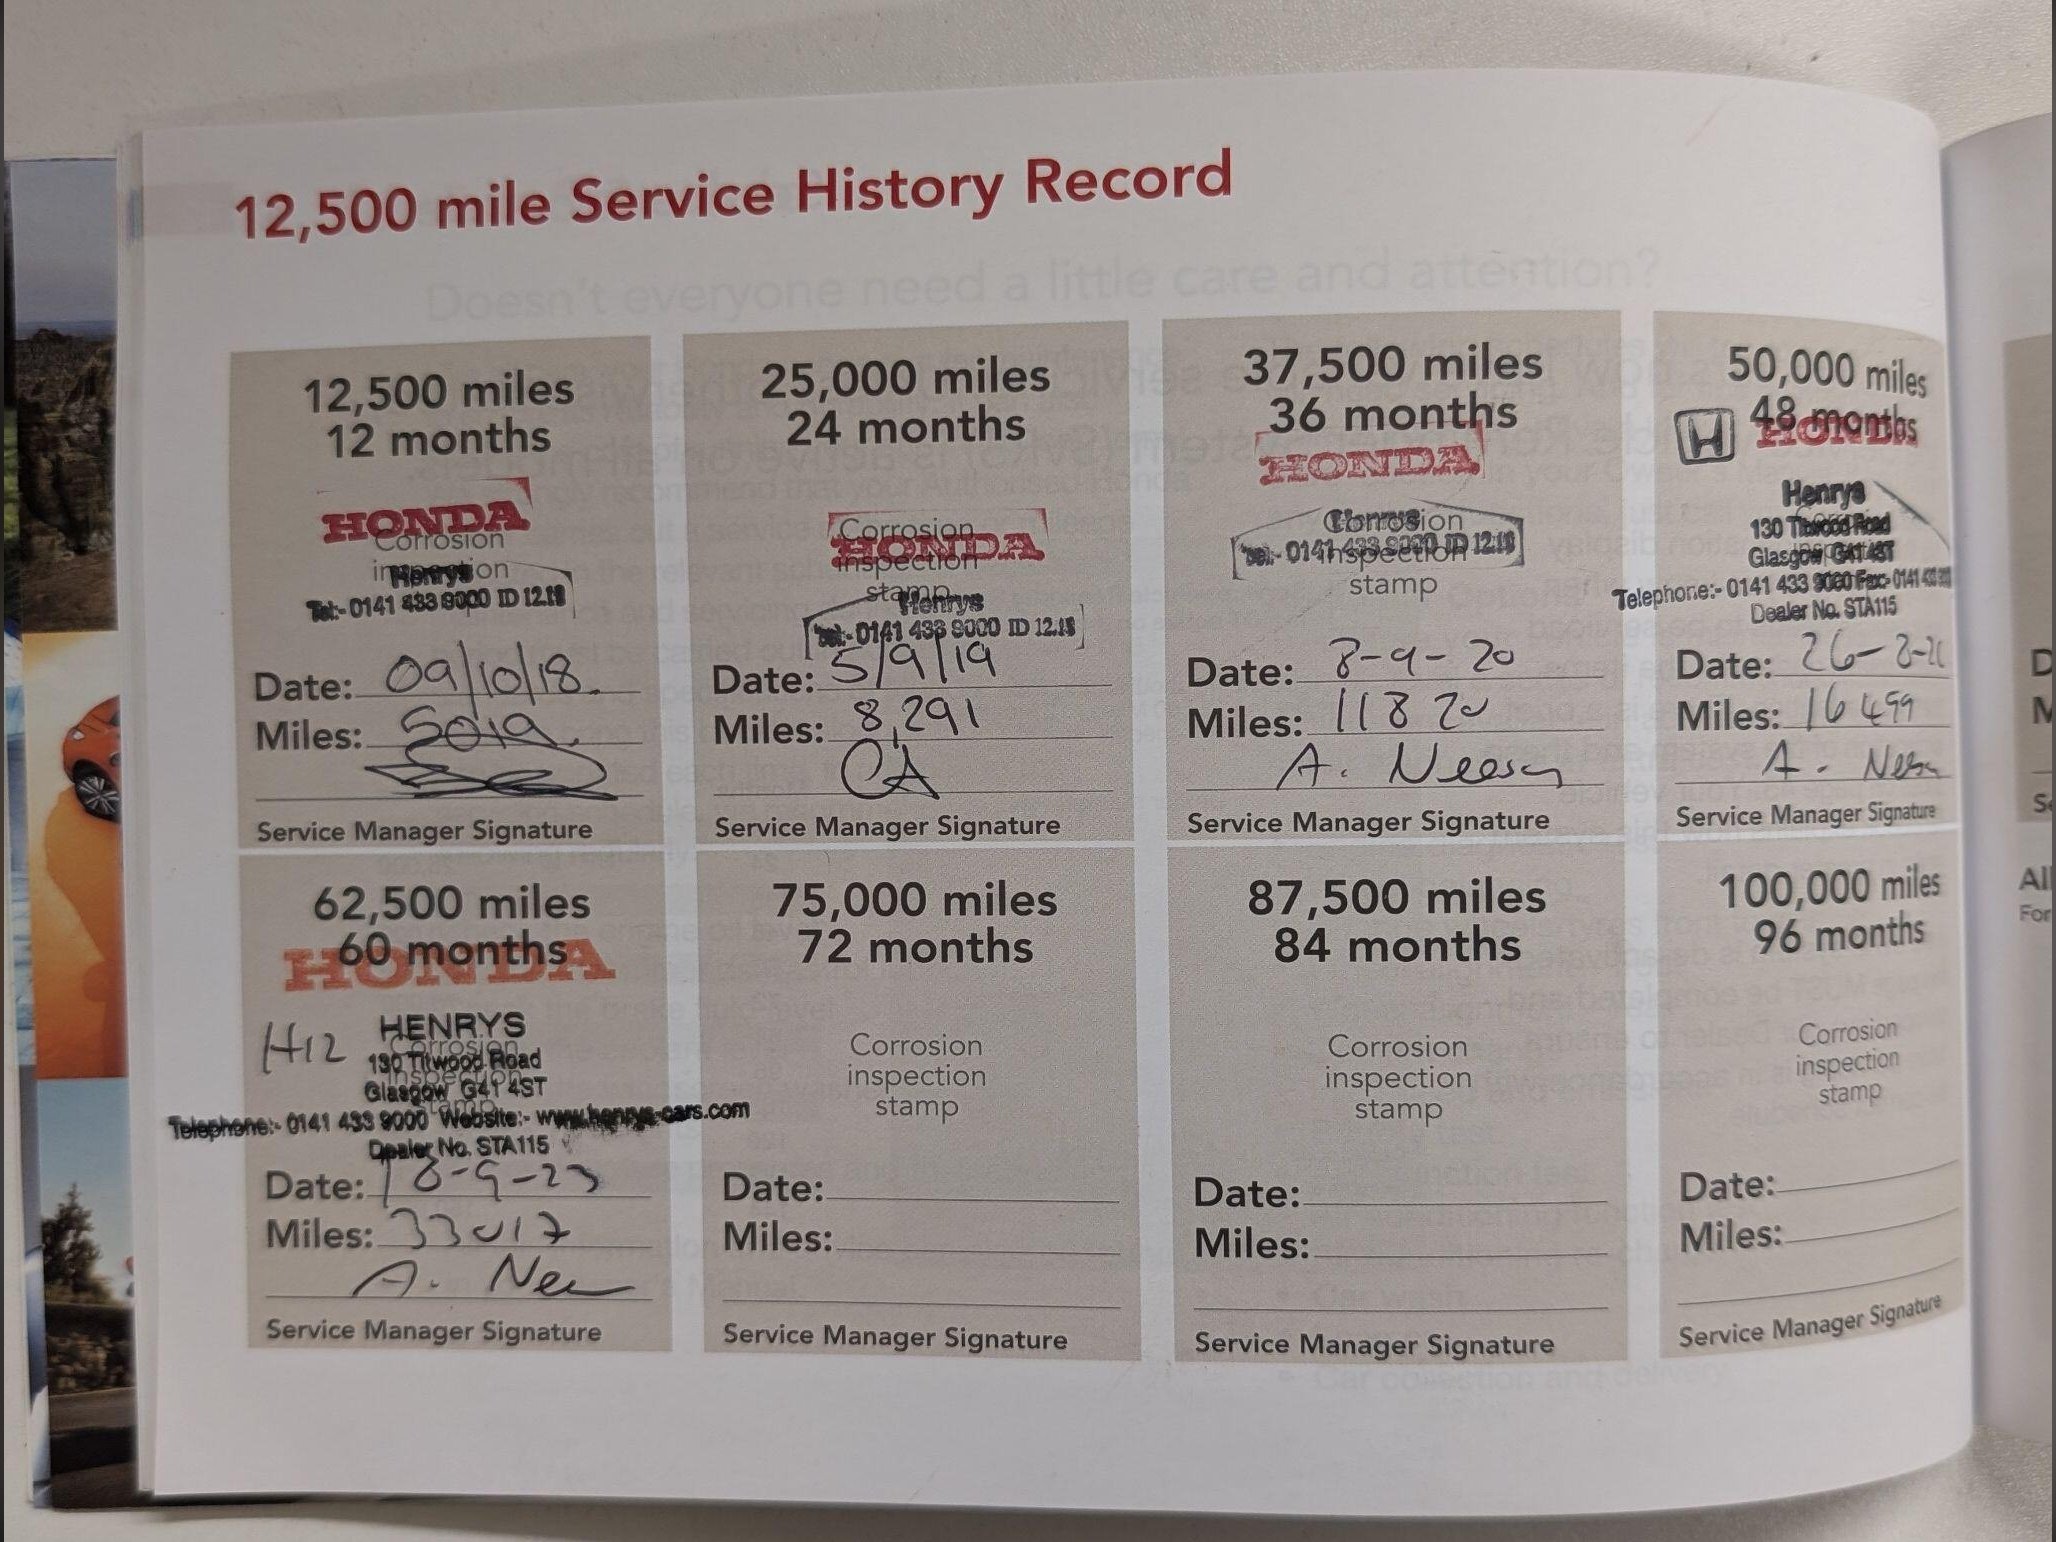 12,500 mile Service History Record
Doesn't everyone need a little care and attention?
12,500 miles
12 months
HONDA
Corrosion
inspection
Henrys
Tel:- 0141 433 9000 ID 12.18
Date: 09/10/18.
Miles: 5019.
Service Manager Signature
25,000 miles
24 months
Corrosion
HONDA
inspection
stamp
Henrys
Tel:- 0141 433 9000 ID 12.18
Date: 5/9/19
Miles: 8,291
CA
Service Manager Signature
37,500 miles
36 months
HONDA
Henrys
Corrosion
Tel:- 0141 433 9000 ID 12.18
inspection
stamp
Date: 8-9-20
Miles: 11820
A.
Service Manager Signature
50,000 miles
48 months
H HONDA
Henrys
130 Titwood Road
Glasgow G41 4ST
Telephone:- 0141 433 9000 Fax:- 0141
Dealer No. STA115
Date: 26-8-
Miles: 16499
A.
Service Manager Signature
62,500 miles
60 months
HONDA
H12
HENRYS
Corrosion
130 Titwood Road
inspection
Glasgow G41 4ST
stamp
Telephone:- 0141 433 9000 Website:- www.henrys-cars.com
Dealer No. STA115
Date: 18-9-23
Miles: 33017
A.
Service Manager Signature
75,000 miles
72 months
Corrosion
inspection
stamp
Date:
Miles:
Service Manager Signature
87,500 miles
84 months
Corrosion
inspection
stamp
Date:
Miles:
Service Manager Signature
100,000 miles
96 months
Corrosion
inspection
stamp
Date:
Miles:
Service Manager Signature